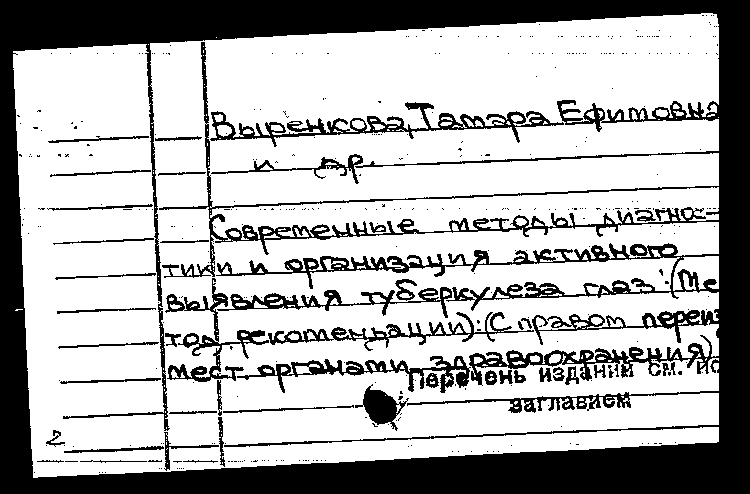 Выренкова, Тамара Ефимовна
и др.
Современные методы диагнос-
тики и организация активного
выявления туберкулеза глаз: (Ме
тод. рекомендации): (С правом переиз
мест. органами здравоохранения)
Перечень изданий см.
заглавием
2